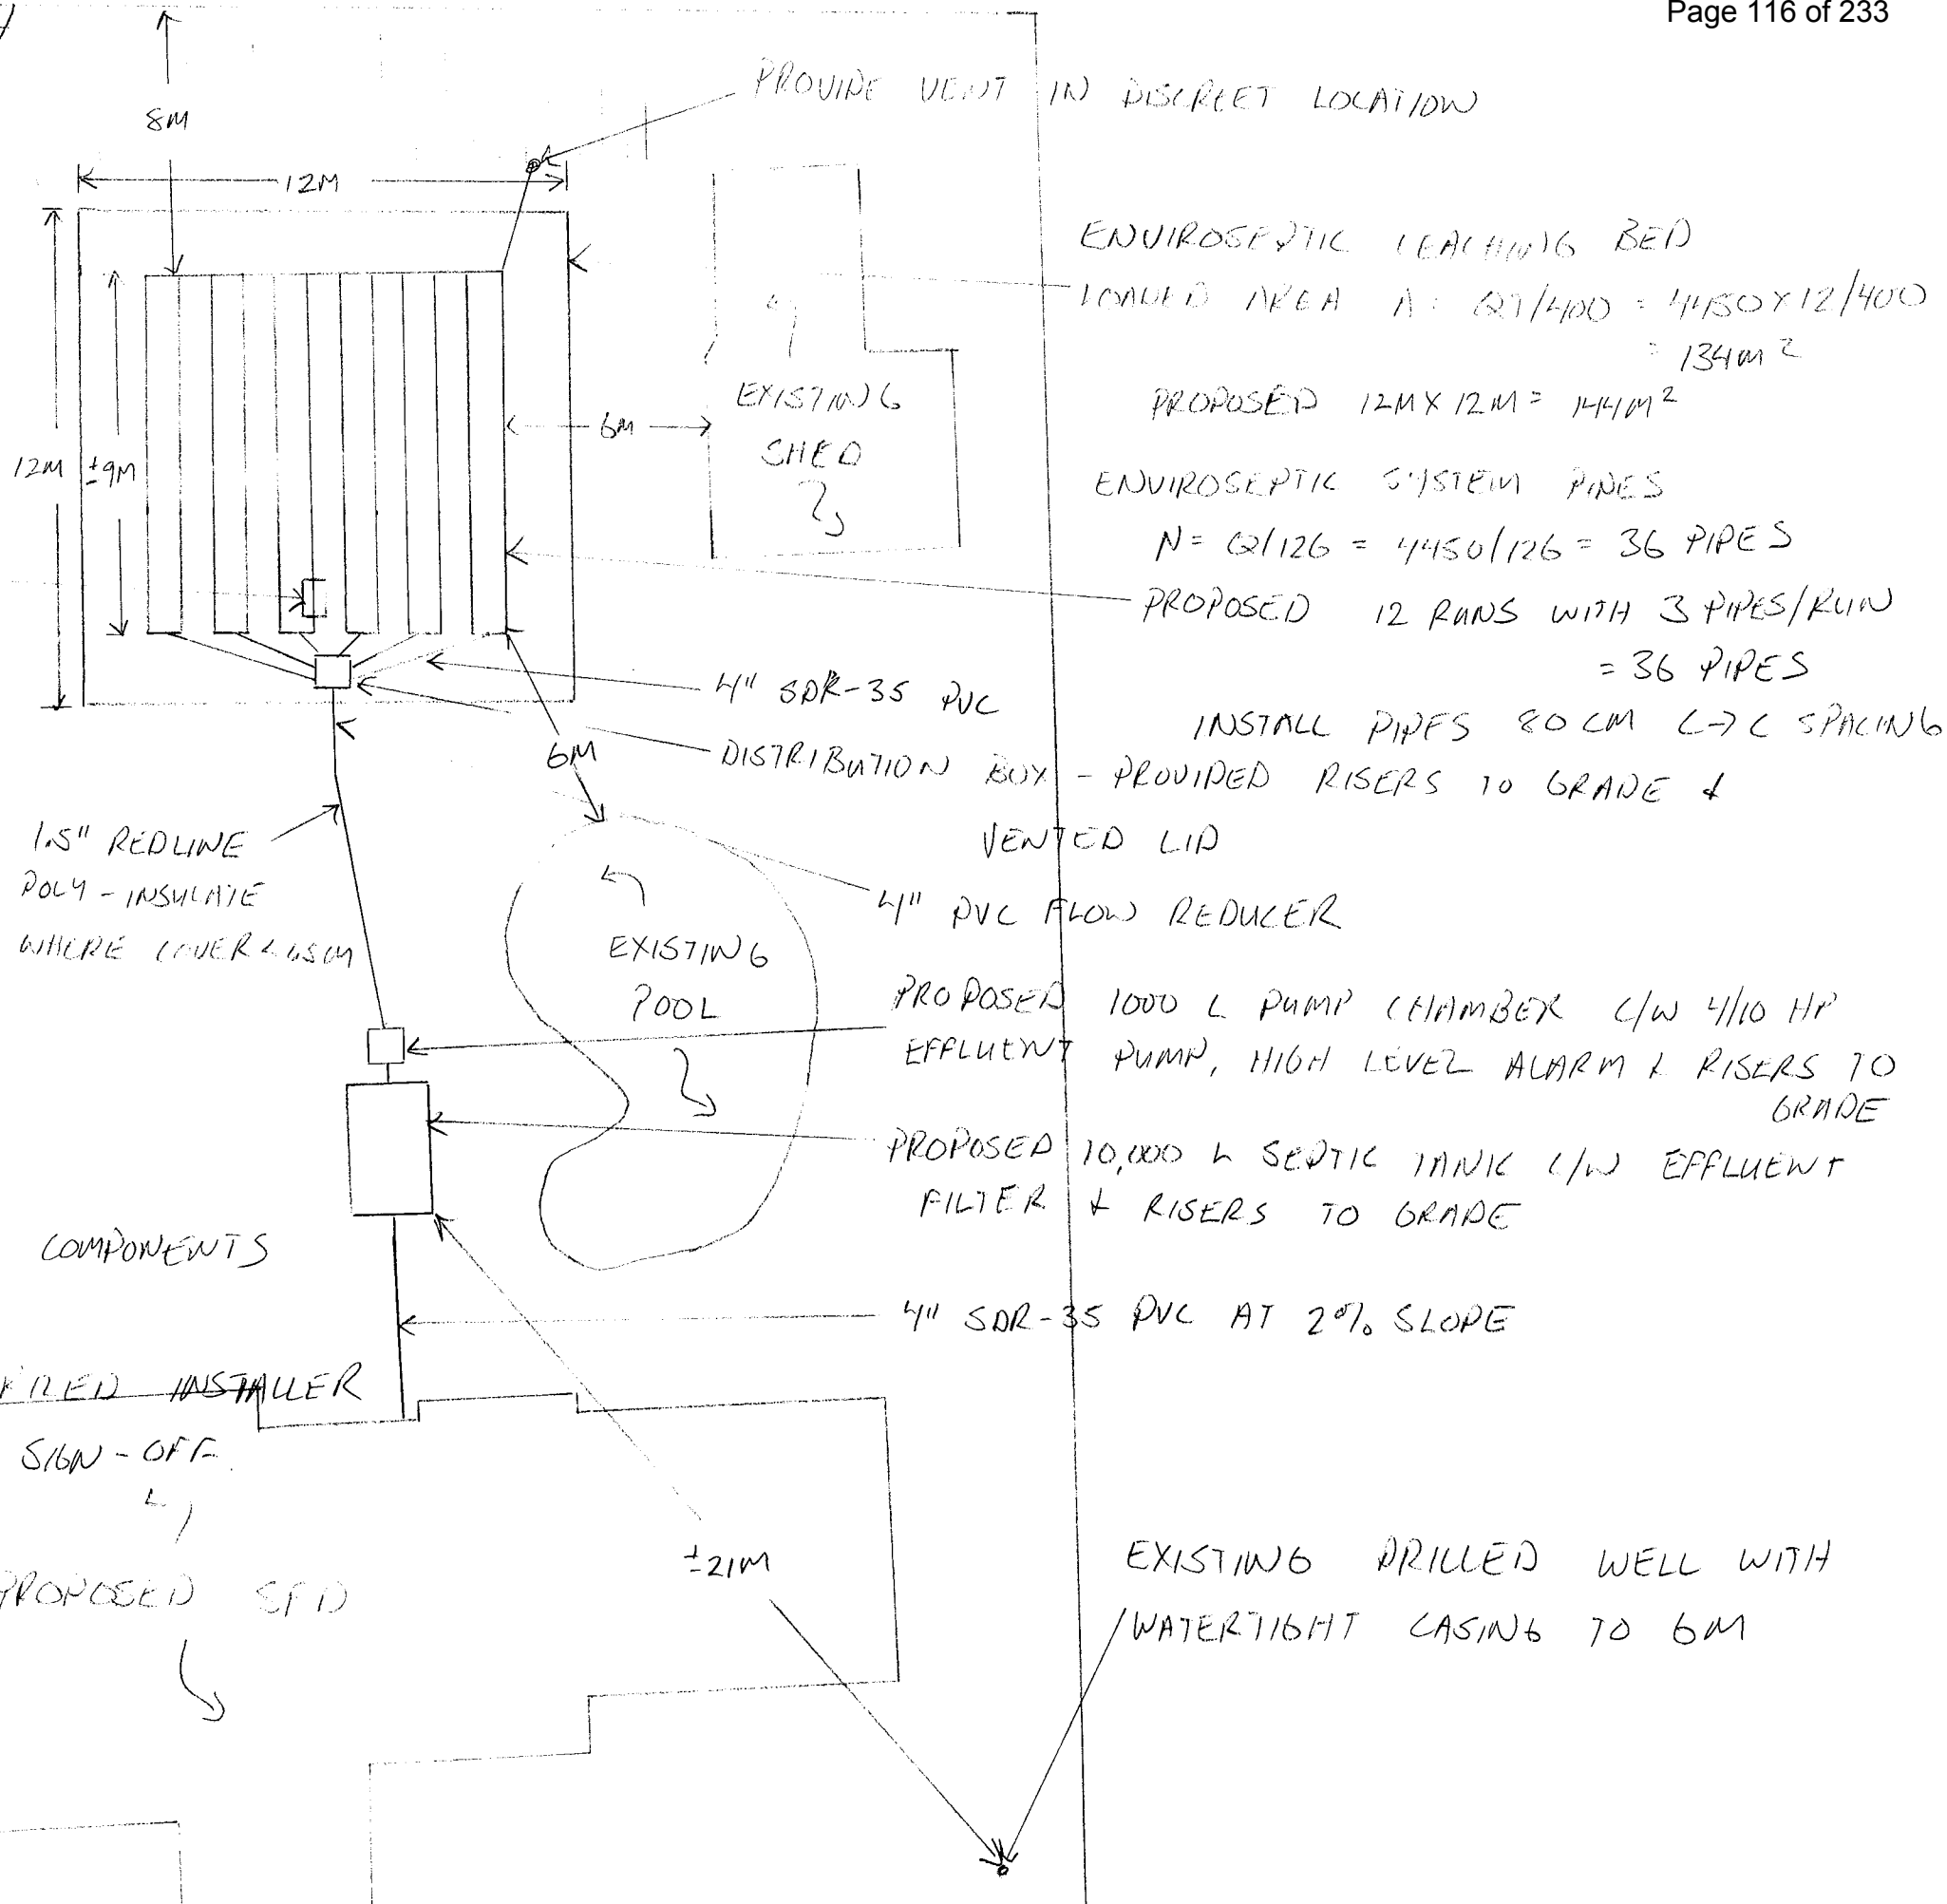 Page 116 of 233
8M
PROVIDE VENT IN DISCREET LOCATION
12M
ENVIROSEPTIC LEACHING BED
LOADED AREA A = QT/400 = 4450 X 12/400
= 134M²
PROPOSED 12M X 12M = 144M²
EXISTING
SHED
6M
12M
±9M
ENVIROSEPTIC SYSTEM PIPES
N = Q/126 = 4450/126 = 36 PIPES
PROPOSED 12 RUNS WITH 3 PIPES/RUN
= 36 PIPES
INSTALL PIPES 80 CM C->C SPACING
4" SDR-35 PVC
6M
DISTRIBUTION BOX - PROVIDED RISERS TO GRADE &
VENTED LID
1.5" REDLINE
POLY - INSULATE
WHERE COVER <
4" PVC FLOW REDUCER
EXISTING
POOL
PROPOSED 1000 L PUMP CHAMBER C/W 4/10 HP
EFFLUENT PUMP, HIGH LEVEL ALARM & RISERS TO
GRADE
PROPOSED 10,000 L SEPTIC TANK C/W EFFLUENT
FILTER & RISERS TO GRADE
COMPONENTS
4" SDR-35 PVC AT 2% SLOPE
INSTALLER
SIGN-OFF
±21M
PROPOSED SFD
EXISTING DRILLED WELL WITH
WATERTIGHT CASING TO 6M